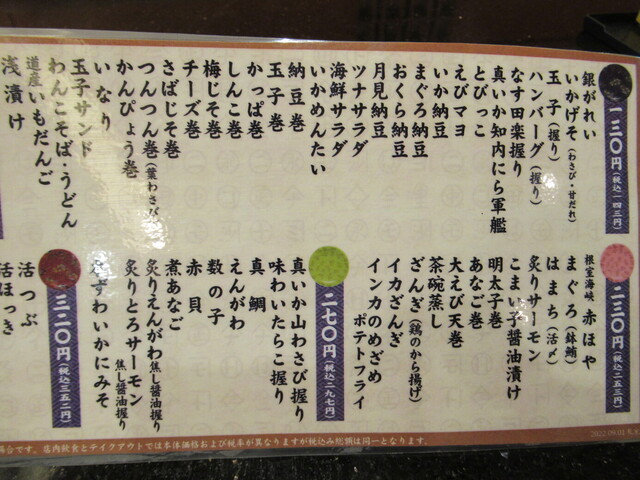 一三〇円(税込一四三円)
銀がれい
いかげそ(わさび・甘だれ)
玉子(握り)
ハンバーグ(握り)
なす田楽握り
真いか知内にら軍艦
とびっこ
えびマヨ
いか納豆
まぐろ納豆
おくら納豆
月見納豆
ツナサラダ
海鮮サラダ
いかめんたい
納豆巻
玉子巻
かっぱ巻
しんこ巻
梅じそ巻
チーズ巻
さばじそ巻
つんつん巻(葉わさび)
かんぴょう巻
いなり
玉子サンド
わんこそば・うどん
道産いもだんご
浅漬け
二三〇円(税込二五三円)
根室海峡 赤ほや
まぐろ(鉢鮪)
はまち(活〆)
炙りサーモン
こまい子醤油漬け
明太子巻
あなご巻
大えび天巻
茶碗蒸し
ざんぎ(鶏のから揚げ)
イカざんぎ
インカのめざめ
ポテトフライ
二七〇円(税込二九七円)
真いか山わさび握り
味わいたらこ握り
真鯛
えんがわ
数の子
赤貝
煮あなご
炙りえんがわ焦し醤油握り
炙りとろサーモン
焦し醤油握り
ずわいかにみそ
三二〇円(税込三五二円)
活つぶ
活ほっき
場合です。店内飲食とテイクアウトでは本体価格および税率が異なりますが税込み総額は同一となります。